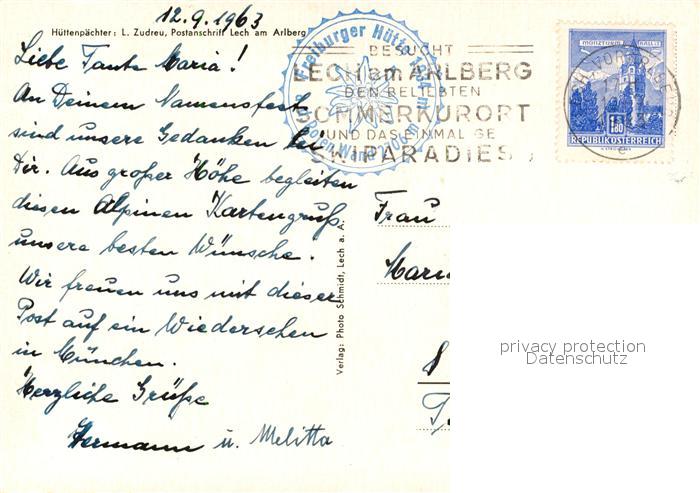 12.9.1963
Hüttenpächter: L. Zudreu, Postanschrift Lech am Arlberg
Liebe Tante Maria!
An Deinem Namensfest
sind unsere Gedanken bei
Dir. Aus großer Höhe begleiten
diesen Alpinen Kartengruß
unsere besten Wünsche.
Wir freuen uns mit dieser
Post auf ein Wiedersehen
in München.
Herzliche Grüße
Hermann u. Melitta
Verlag: Photo Schmidt, Lech a. A.
Freiburger Hütte
Roten Wand 2706 m
BESUCHT
LECH am ARLBERG
DEN BELIEBTEN
SOMMERKURORT
UND DAS EINMALIGE
SKIPARADIES
MÜNZTURM HALL i. T.
1.80
REPUBLIK ÖSTERREICH
LECH, VORARLBERG
Frau
Mari
8
privacy protection
Datenschutz